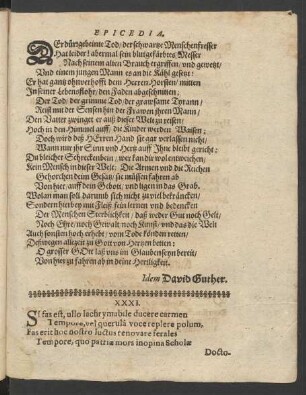 EPICEDIA.
DEr dürrgebeinte Tod/ der schwartze Menschenfresser
Hat leider! abermal sein blutgefärbtes Messer
Nach seinem alten Brauch ergriffen/ und gewetzt/
Und einem jungen Mann es an die Kähl gesetzt:
Er hat gantz ohnverhofft dem Herren Horsten/ mitten
In seiner Lebensflohr/ den Faden abgeschnitten/
Der Tod/ der grimme Tod/ der grawsame Tyrann/
Reißt mit der Sensen hin der Frawen ihren Mann/
Den Vatter zwinget er auß dieser Welt zu reisen/
Hoch in den Himmel auff/ die Kinder werden Waisen:
Doch wird deß HErren Hand sie gar verlassen nicht/
Wann nur ihr Sinn und Hertz auff Jhne bleibt gericht:
Du bleicher Schreckenbein/ wer kan dir wol entweichen/
Kein Mensch in dieser Welt: Die Armen und die Reichen
Gehorchen deim Gesatz/ sie müssen fahren ab
Von hier/ auff dein Gebott/ und ligen in das Grab.
Wolan man soll darumb sich nicht zu viel bekräncken/
Sondern hierbey mit Fleiß sein lernen und bedencken
Der Menschen Sterblichkeit/ daß weder Gut noch Gelt/
Noch Ehre/ noch Gewalt noch Kunst/ und was die Welt
Auch sonsten hoch erhebt/ vom Tod können retten/
Deßwegen allezeit zu Gott von Hertzen betten:
O grosser GOtt laß uns im Glauben seyn bereit/
Von hier zu fahren ab in deine Herrligkeit.
Idem David Guther.
XXXI.
SI fas est, ullo lachrymabile ducere carmen
Tempore, vel querulâ voce replere polum,
Fas erit hoc nostro luctus renovare ferales
Tempore, quo patriæ mors inopina Scholæ
Docto-